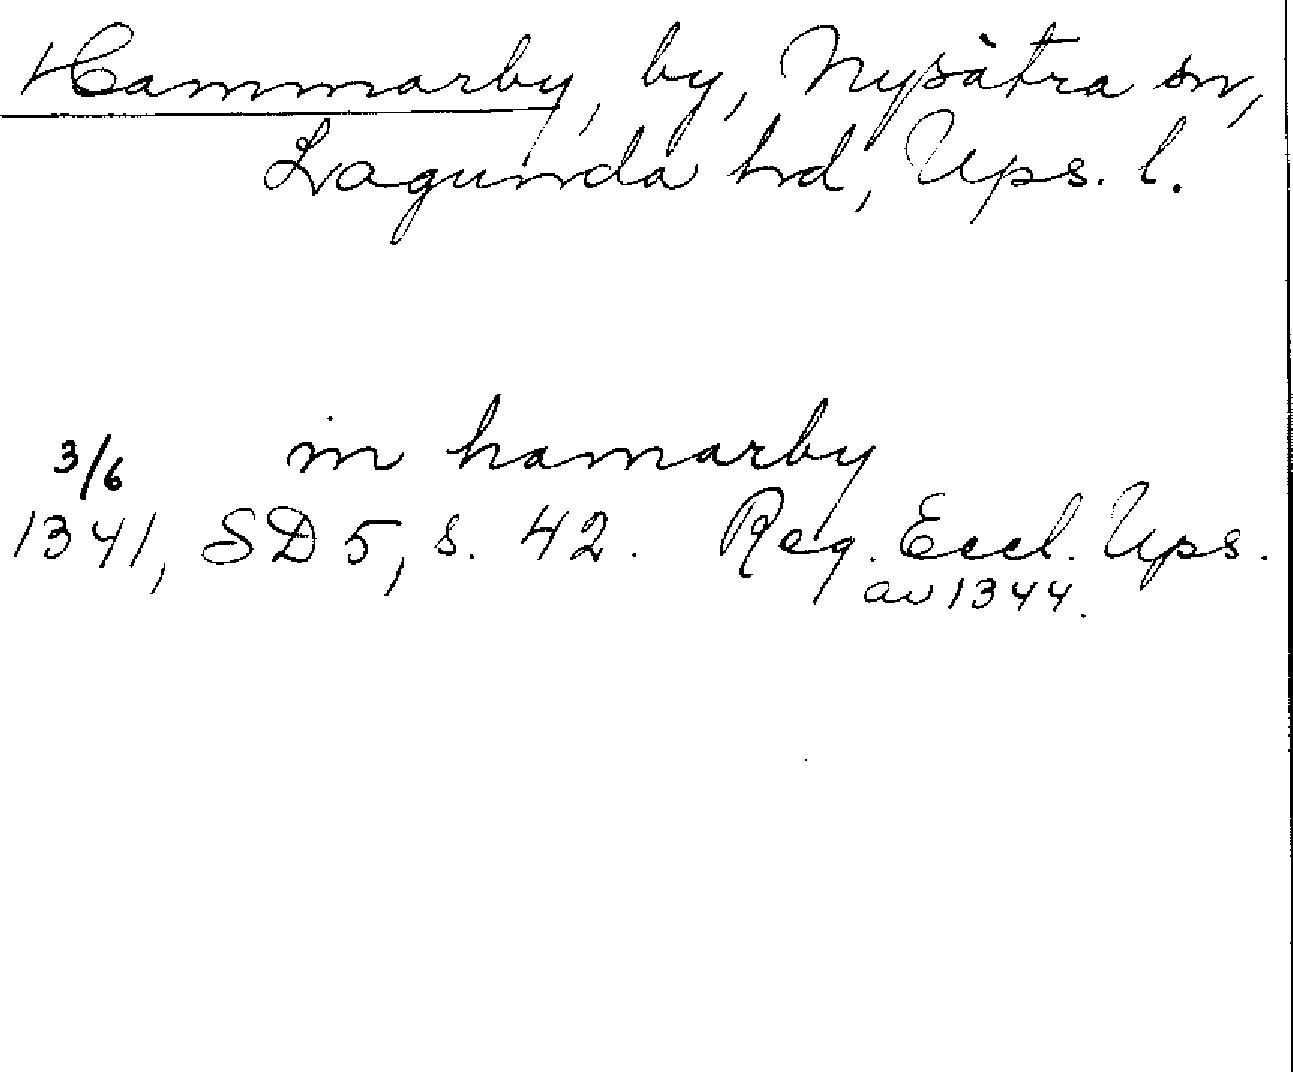 Hammarby, by, Nysätra sn,
Lagunda hd, Ups. l.
in hamarby
3/6
1341, SD 5, s. 42. Reg. Eccl. Ups.
av 1344.